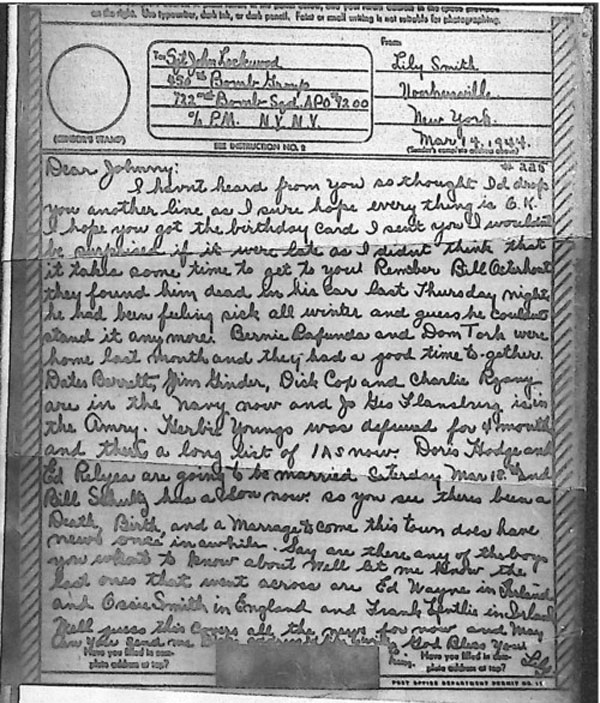 on the right. Use typewriter, dark ink, or dark pencil. Faint or small writing is not suitable for photographing.
To Sgt John Lockwood
450th Bomb Group
722nd Bomb Sqd. APO #9200
c/o P.M. N.Y. N.Y.
From
Lily Smith
New York.
Mar 14, 1944.
(Sender's complete address above)
(CENSOR'S STAMP)
SEE INSTRUCTION NO. 2
# 225
Dear Johnny:
I havnt heard from you so thought I d drop
you another line as I sure hope every thing is O.K.
I hope you got the birthday card I sent you I wouldnt
be surprised if it were late as I didnt think that
it takes some time to get to you! Rember Bill Osterhout
they found him dead in his car last Thursday night,
he had been feeling sick all winter and guess he couldnt
stand it any more. Bernie Pafunda and Dom Tork were
home last month and they had a good time to-gether.
Barrett, Jim Ginder, Dick Cop and Charlie
are in the navy now and Jo Geo Flansburg is in
the Amry. Herbie Youngs was defured for 4 month
and theres a long list of 1AS now. Doris Hodge and
Ed Relyea are going to be married Saterday Mar 18th and
Bill Schultz has a son now. so you see theres been a
Death, Birth, and a Marrage to come this town does have
news once in awhile. Say are there any of the boys
you whant to know about well let me know the
last ones that went across are Ed Wayne in Irland
and Ossie Smith in England and Frank in Irland
Well guess this covers all the news for now and may
can you send me God Bless You
Lily
Have you filled in complete address at top?
Have you filled in complete address at top?
POST OFFICE DEPARTMENT PERMIT NO.